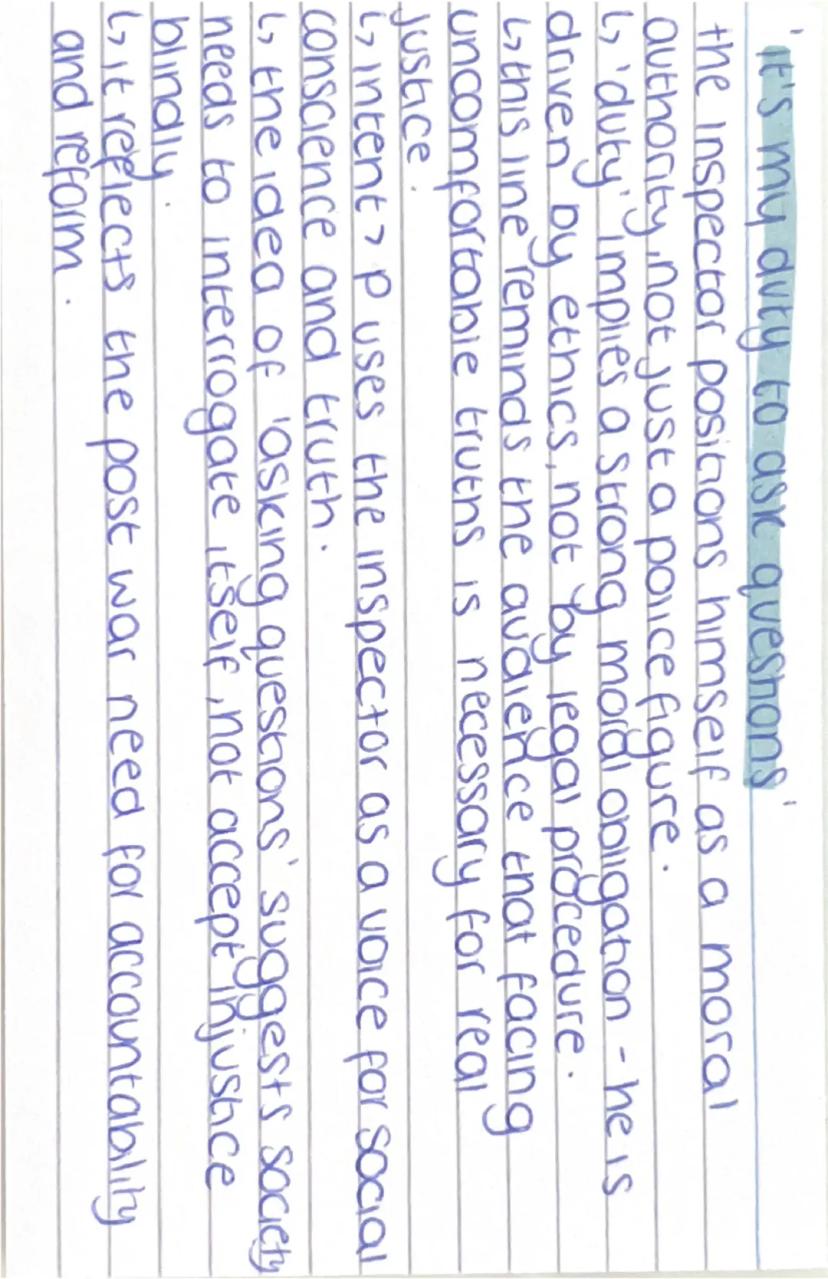 'it's my duty to ask questions'
the inspector positions himself as a moral
authority, not just a police figure.
↳ 'duty' implies a strong moral obligation - he is
driven by ethics, not by legal procedure.
↳ this line reminds the audience that facing
uncomfortable truths is necessary for real
justice.
↳ intent > P uses the inspector as a voice for social
conscience and truth.
↳ the idea of 'asking questions' suggests society
needs to interrogate itself, not accept injustice
blindly.
↳ it reflects the post war need for accountability
and reform.